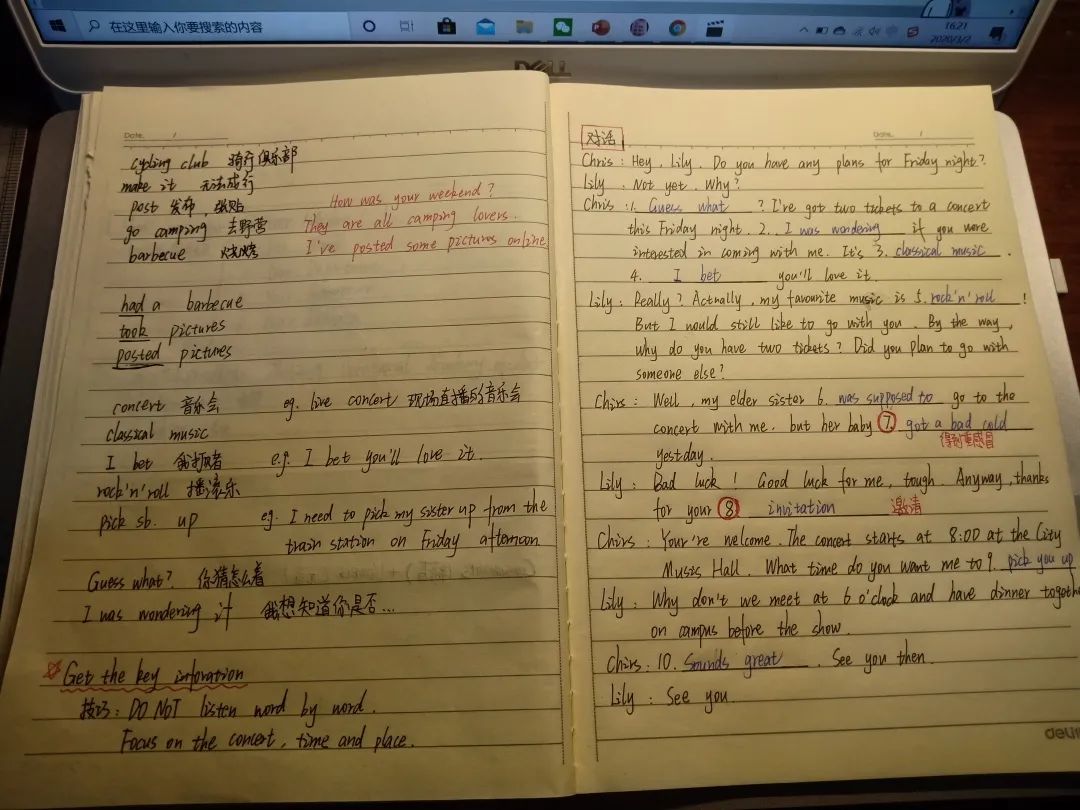 在这里输入你要搜索的内容
16:21
2020/3/2
DELL
Date. /
cycling club 骑行俱乐部
make it 无法成行
post 发布，张贴
How was your weekend?
go camping 去野营
They are all camping lovers.
barbecue 烧烤
I've posted some pictures online
had a barbecue
took pictures
posted pictures
concert 音乐会 eg. live concert 现场直播的音乐会
classical music
I bet 我打赌 e.g. I bet you'll love it.
rock'n'roll 摇滚乐
pick sb. up eg. I need to pick my sister up from the
train station on Friday afternoon
Guess what? 你猜怎么着
I was wondering if 我想知道你是否...
Get the key inforation
技巧: DO NOT listen word by word.
Focus on the concert, time and place.
Date. /
对话
Chris: Hey, Lily. Do you have any plans for Friday night?
Lily: Not yet. Why?
Chris: 1. Guess what ? I've got two tickets to a concert
this Friday night. 2. I was wondering if you were
interested in coming with me. It's 3. classical music.
4. I bet you'll love it.
Lily: Really? Actually, my favourite music is 5. rock'n'roll !
But I would still like to go with you. By the way,
why do you have two tickets? Did you plan to go with
someone else?
Chirs: Well, my elder sister 6. was supposed to go to the
concert with me. but her baby 7. got a bad cold
得到重感冒
yestday.
Lily: Bad luck! Good luck for me, tough. Anyway, thanks
for your 8 invitation 邀请
Chirs: Your're welcome. The concert starts at 8:00 at the City
Musis Hall. What time do you want me to 9. pick you up
Lily: Why don't we meet at 6 o'clock and have dinner togeth
on campus before the show.
Chirs: 10. Sounds great. See you then.
Lily: See you.
deli